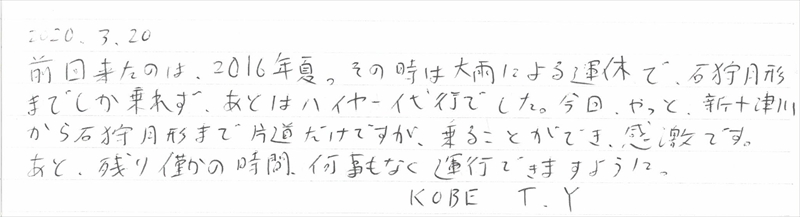 2020.3.20
前回来たのは、2016年夏。その時は大雨による運休で、石狩月形
までしか乗れず、あとはハイヤー代行でした。今回、やっと、新十津川
から石狩月形まで片道だけですが、乗ることができ、感激です。
あと、残り僅かの時間、何事もなく運行できますように。
KOBE T.Y